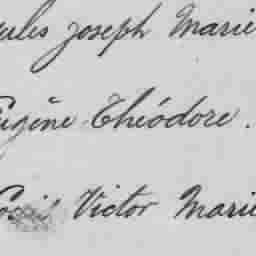 Jules Joseph Marie
Eugène Théodore.
Victor Marie